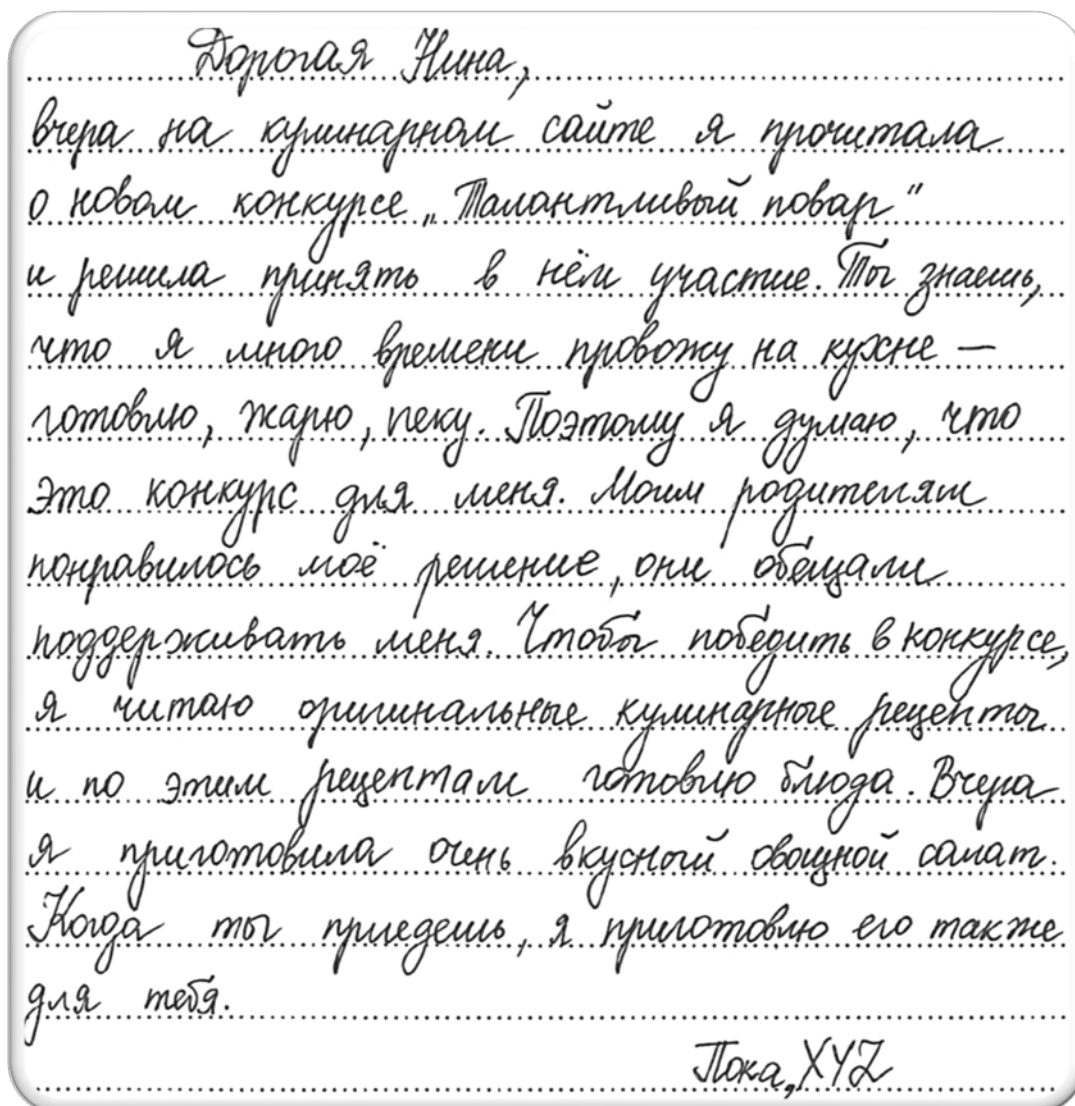 Дорогая Нина,
вчера на кулинарном сайте я прочитала
о новом конкурсе „Талантливый повар”
и решила принять в нём участие. Ты знаешь,
что я много времени провожу на кухне –
готовлю, жарю, пеку. Поэтому я думаю, что
это конкурс для меня. Моим родителям
понравилось моё решение, они обещали
поддерживать меня. Чтобы победить в конкурсе,
я читаю оригинальные кулинарные рецепты
и по этим рецептам готовлю блюда. Вчера
я приготовила очень вкусный овощной салат.
Когда ты приедешь, я приготовлю его также
для тебя.
Пока, XYZ